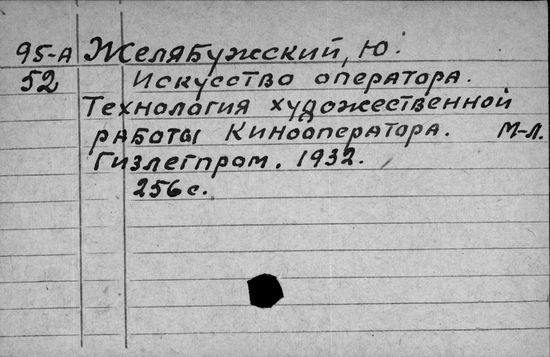 95-А Желябужский, Ю.
52 Искусство оператора.
Технология художественной
работы Кинооператора. М-Л.
Гизлегпром. 1932.
256 с.